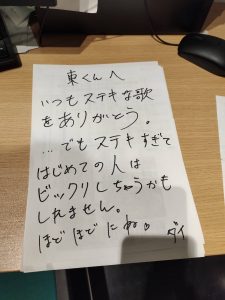 東くんへ
いつもステキな歌
をありがとう。
…でもステキすぎて
はじめての人は
ビックリしちゃうかも
しれません。
ほどほどにね。
ダイ